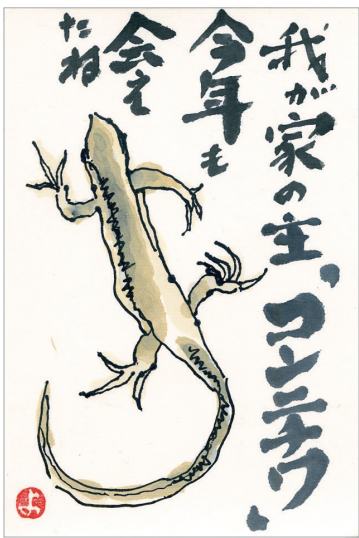 我が家の主、コンニチワ、
今年も
会え
たね
よ